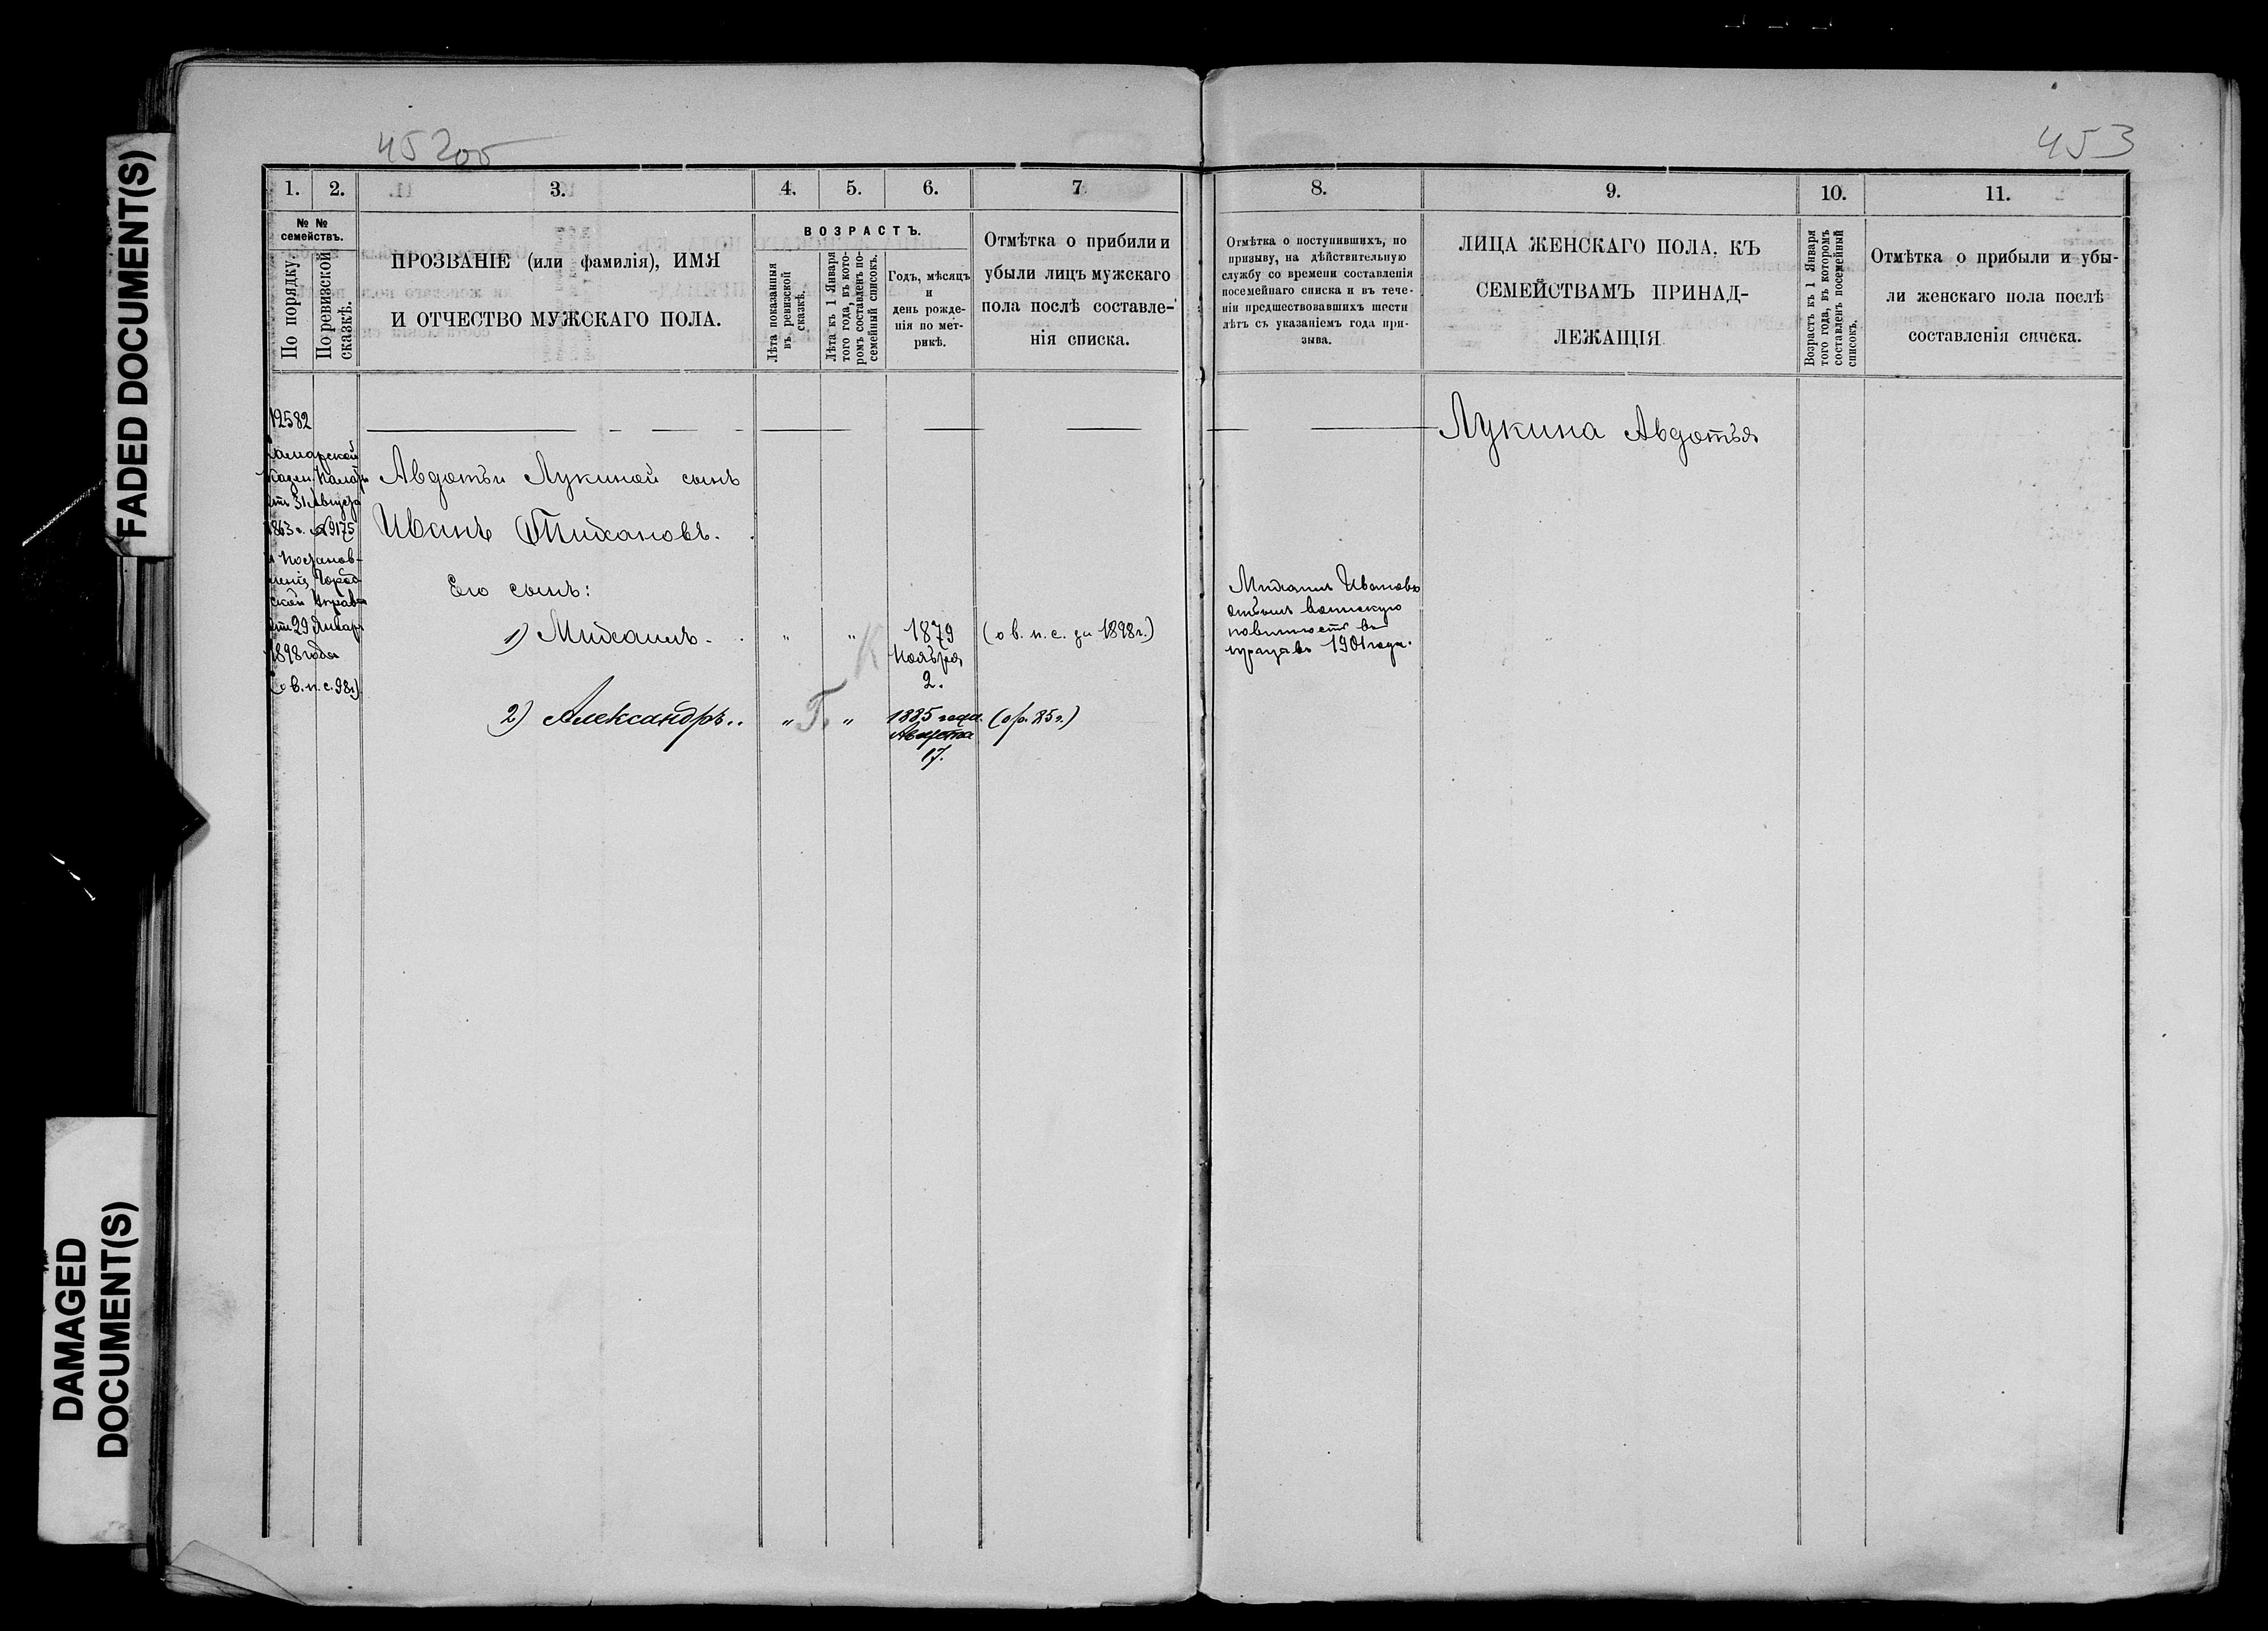 FADED DOCUMENT(S)
DAMAGED
DOCUMENT(S)
45 2об
1. 2. 3. 4. 5. 6. 7
№ №
семействъ.
По порядку.
По ревизской
сказкѣ.
ПРОЗВАНІЕ (или фамилія), ИМЯ
И ОТЧЕСТВО МУЖСКАГО ПОЛА.
ВОЗРАСТЪ.
Лѣта показанныя
въ ревизской
сказкѣ.
Лѣта къ 1 Января
того года, въ кото-
ромъ составленъ по-
семейный списокъ.
Годъ, мѣсяцъ
и
день рожде-
нія по мет-
рикѣ.
Отмѣтка о прибыли и
убыли лицъ мужскаго
пола послѣ составле-
нія списка.
12582
Самарской
Казен. Палаты
отъ 31 Августа
1863 г. № 9175
и Постанов-
ленія Город-
ской Управы
отъ 29 Января
1898 года
(о в. п. с. 98 г.)
Авдотьи Лукиной сынъ
Иванъ Тихановъ.
Его сынъ:
1) Михаилъ. " " 1879 (о в. п. с. за 1898 г.)
Ноября
2.
К
2) Александръ.. " Г. " 1885 года (о р. 85 г.)
Августа
17.
453
8. 9. 10. 11.
Отмѣтка о поступившихъ, по
призыву, на дѣйствительную
службу со времени составленія
посемейнаго списка и въ тече-
ніи предшествовавшихъ шести
лѣтъ съ указаніемъ года при-
зыва.
ЛИЦА ЖЕНСКАГО ПОЛА, КЪ
СЕМЕЙСТВАМЪ ПРИНАД-
ЛЕЖАЩІЯ
Возрастъ къ 1 Января
того года, въ которомъ
составленъ посемейный
списокъ.
Отмѣтка о прибыли и убы-
ли женскаго пола послѣ
составленія списка.
Лукина Авдотья
Михаилъ Ивановъ
отбылъ воинскую
повинность въ
призывъ 1901 года.